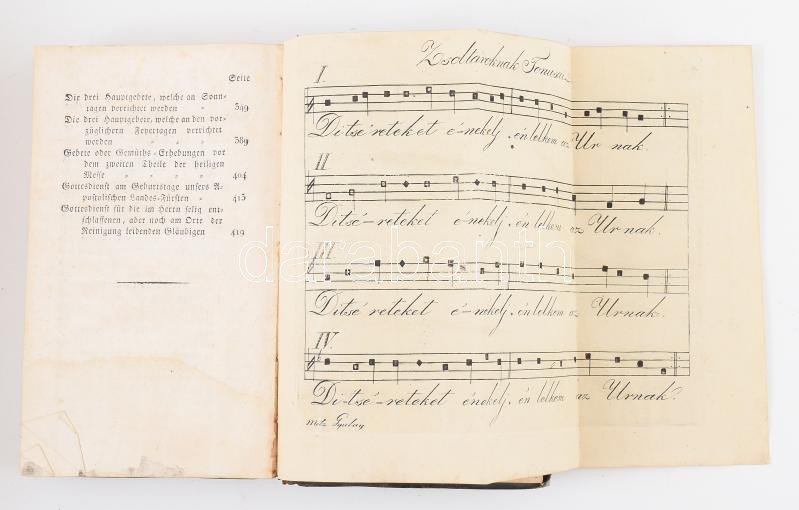 Seite
Die drei Hauptgebete, welche an Sonn-
tagen verrichtet werden " 349
Die drei Hauptgebete, welche an den vor-
züglichern Feyertagen verrichtet
werden " " " 389
Gebete oder Gemüths-Erhebungen vor
dem zweiten Theile der heiligen
Messe " " " " 404
Gottesdienst am Geburtstage unsers A-
postolischen Landes-Fürsten " 413
Gottesdienst für die im Herrn selig ent-
schlaffenen, aber noch am Orte der
Reinigung leidenden Gläubigen 419
Zsoltároknak Tonusa
I.
Ditsé reteket é-nekelj, én lelkem az Ur nak.
II
Ditsé-reteket é-nekelj, én lelkem az Urnak.
III.
Ditsé reteket é-nekelj, én lelkem az Urnak.
IV.
Di-tsé-reteket énekelj, én lelkem az Urnak.
darabanth